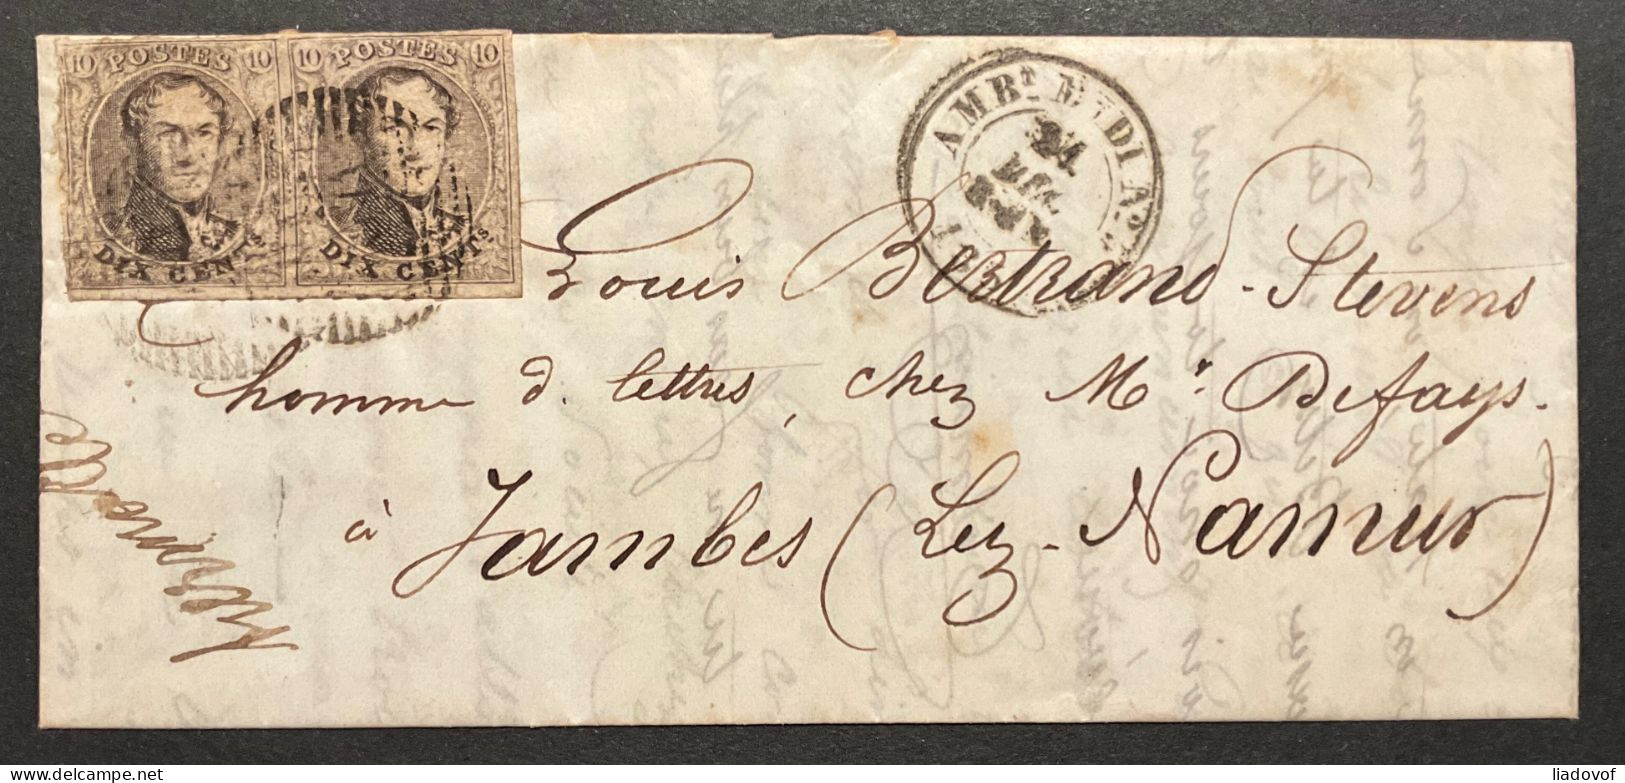 10 POSTES 10
DIX CENTS
10 POSTES 10
DIX CENTS
AMBT
24
Louis Bertrand-Stevens
homme d. lettres, chez Mr Defays.
à Jambes (Lez-Namur)
delcampe.net
liadovof